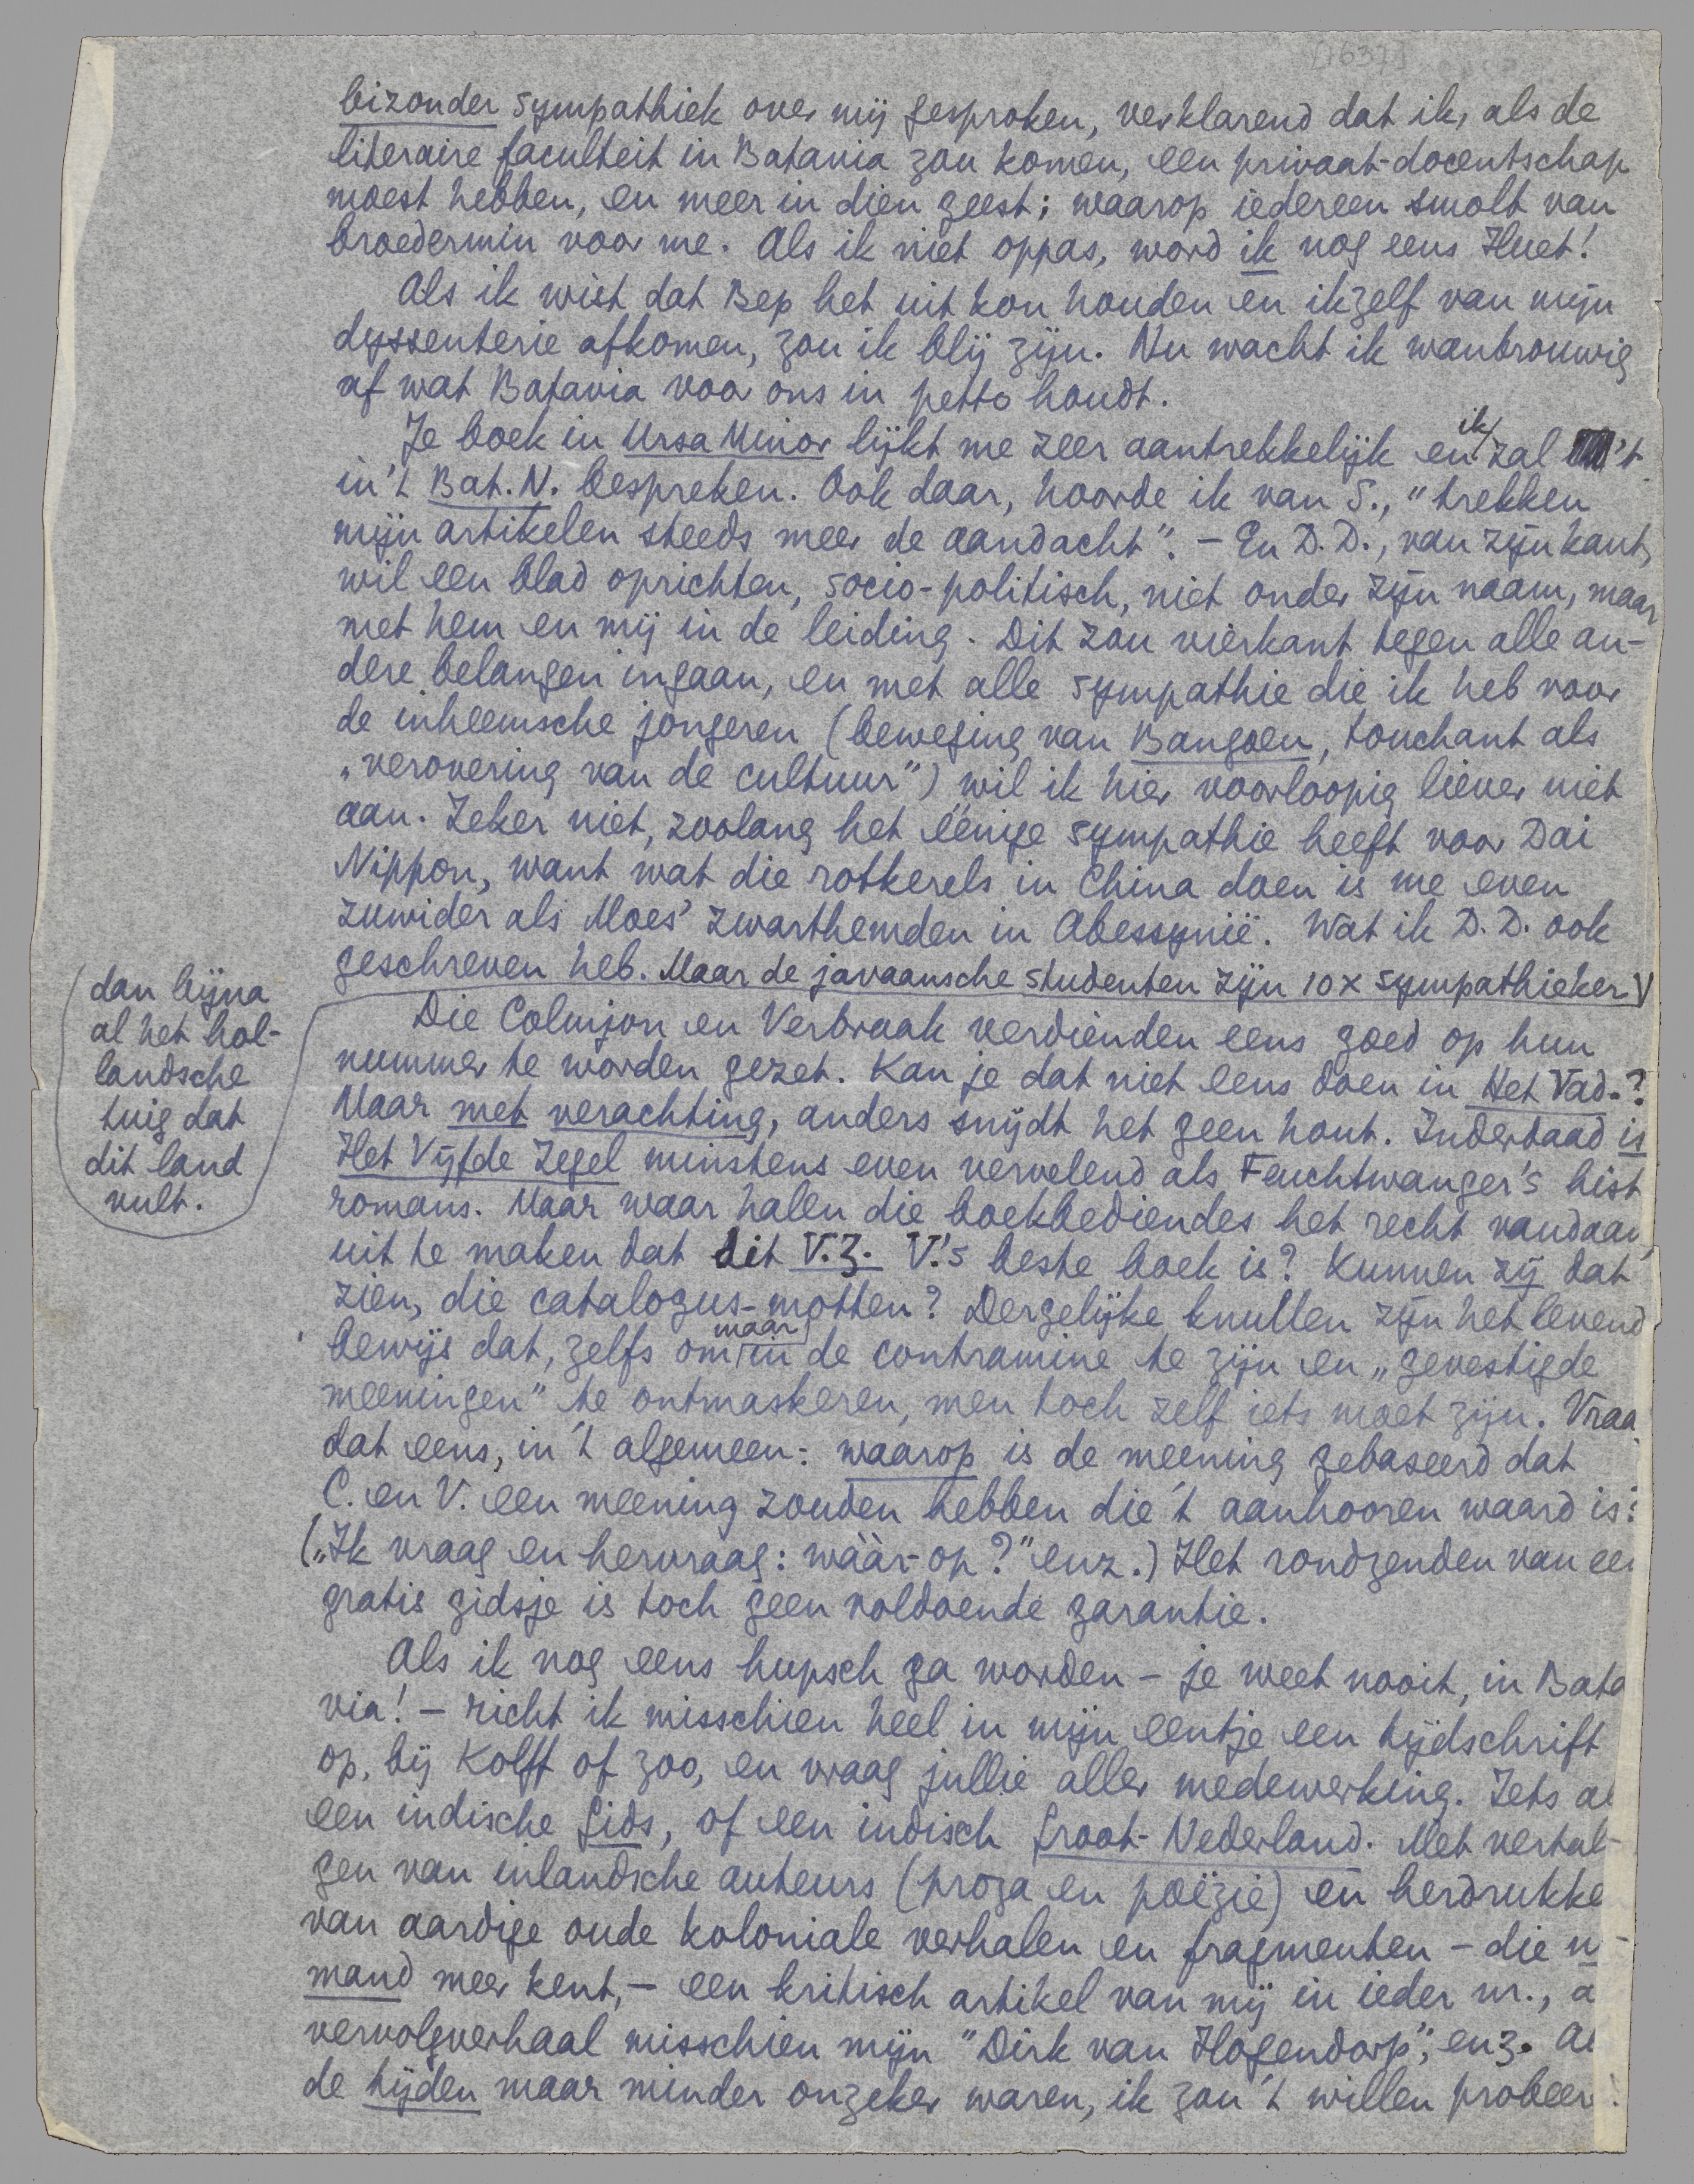 [1637]
bizonder sympathiek over mij gesproken, verklarend dat ik, als de
literaire faculteit in Batavia zou komen, een privaat-docentschap
moest hebben, en meer in dien geest; waarop iedereen smolt van
broedermin voor me. Als ik niet oppas, word ik nog eens Huet!
Als ik wist dat Bep het uit kon houden en ikzelf van mijn
dyssenterie afkomen, zou ik blij zijn. Nu wacht ik wantrouwig
af wat Batavia voor ons in petto houdt.
Je boek in Ursa Minor lijkt me zeer aantrekkelijk en ik zal 't
in 't Bat. N. bespreken. Ook daar, hoorde ik van S., "trekken
mijn artikelen steeds meer de aandacht". - En D.D., van zijn kant,
wil een blad oprichten, socio-politisch, niet onder zijn naam, maar
met hem en mij in de leiding. Dit zou vierkant tegen alle an-
dere belangen ingaan, en met alle sympathie die ik heb voor
de inheemsche jongeren (beweging van Bangoen, touchant als
"verovering van de cultuur") wil ik hier voorloopig liever niet
aan. Zeker niet, zoolang het eenige sympathie heeft voor Dai
Nippon, want wat die rotkerels in China doen is me even
zuwider als Moes' zwarthemden in Abessynië. Wat ik D.D. ook
geschreven heb. Maar de javaansche studenten zijn 10 x sympathieker
dan bijna
al het hol-
landsche
tuig dat
dit land
vult.
Die Colmjon en Verbraak verdienden eens goed op hun
nummer te worden gezet. Kan je dat niet eens doen in Het Vad.?
Maar met verachting, anders snijdt het geen hout. Inderdaad is
Het Vijfde Zegel minstens even vervelend als Feuchtwanger's hist
romans. Maar waar halen die boekbediendes het recht vandaan,
uit te maken dat dit V.Z. V.'s beste boek is? Kunnen zij dat
zien, die catalogus-motten? Dergelijke knullen zijn het levend
bewijs dat, zelfs om maar in de contramine te zijn en "gevestigde
meeningen" te ontmaskeren, men toch zelf iets moet zijn. Vraa
dat eens, in 't algemeen: waarop is de meening gebaseerd dat
C. en V. een meening zouden hebben die 't aanhooren waard is?
("Ik vraag en hervraag: wáár-op?" enz.) Het rondzenden van een
gratis gidsje is toch geen voldoende garantie.
Als ik nog eens hupsch ga worden - je weet nooit, in Bata
via! - richt ik misschien heel in mijn eentje een tijdschrift
op, bij Kolff of zoo, en vraag jullie aller medewerking. Iets al
een indische Gids, of een indisch Groot-Nederland. Met vertal-
gen van inlandsche auteurs (proza en poëzie) en herdrukke
van aardige oude koloniale verhalen en fragmenten - die n
mand meer kent, - een kritisch artikel van mij in ieder nr., a
vervolgverhaal misschien mijn "Dirk van Hogendorp", enz. Al
de tijden maar minder onzeker waren, ik zou 't willen probeer!